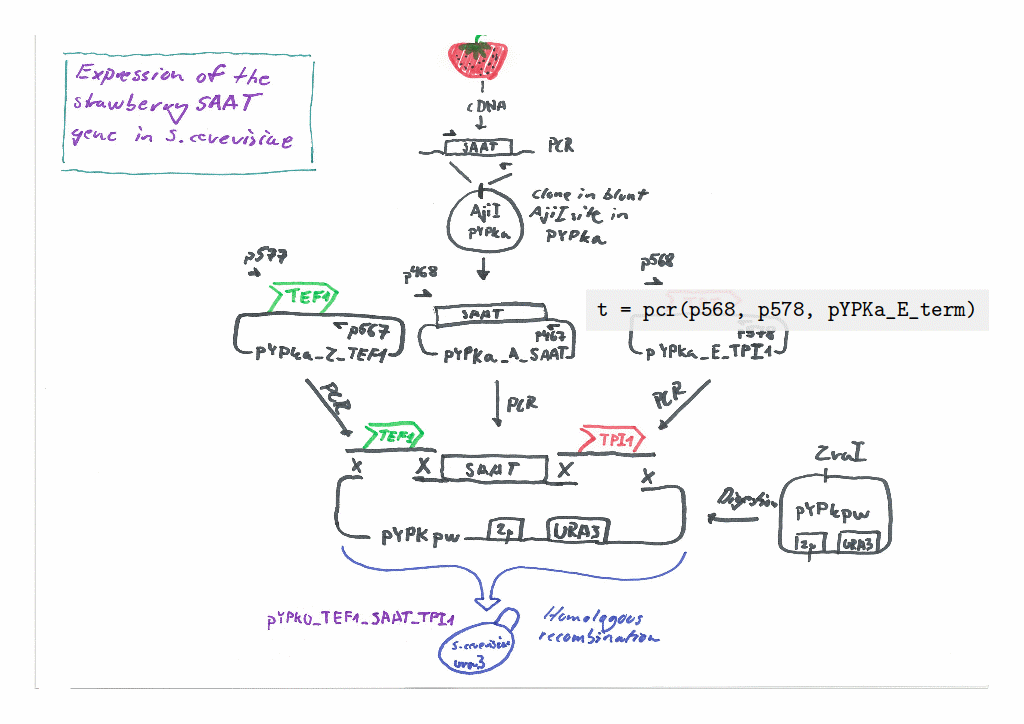 Expression of the
strawberry SAAT
gene in S. cerevisiae
cDNA
SAAT
PCR
AjiI
pYPKa
Clone in blunt
AjiI site in
pYPKa
p577
TEF1
p567
pYPKa_Z_TEF1
p468
SAAT
p467
pYPKa_A_SAAT
p568
t = pcr(p568, p578, pYPKa_E_term)
pYPKa_E_TPI1
PCR
PCR
PCR
TEF1
TPI1
X
X
SAAT
X
X
pYPKpw
2µ
URA3
Digestion
ZraI
pYPKpw
2µ
URA3
pYPK0_TEF1_SAAT_TPI1
Homologous
recombination
S. cerevisiae
ura3